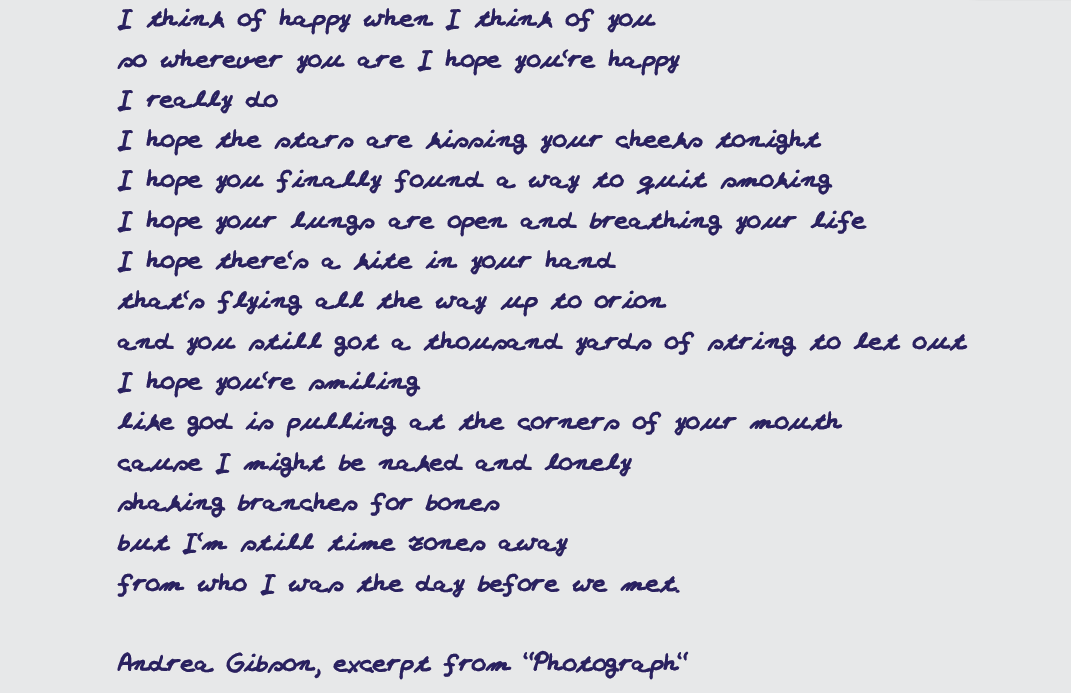 I think of happy when I think of you
so wherever you are I hope you're happy
I really do
I hope the stars are kissing your cheeks tonight
I hope you finally found a way to quit smoking
I hope your lungs are open and breathing your life
I hope there's a kite in your hand
that's flying all the way up to orion
and you still got a thousand yards of string to let out
I hope you're smiling
like god is pulling at the corners of your mouth
cause I might be naked and lonely
shaking branches for bones
but I'm still time zones away
from who I was the day before we met.
Andrea Gibson, excerpt from "Photograph"